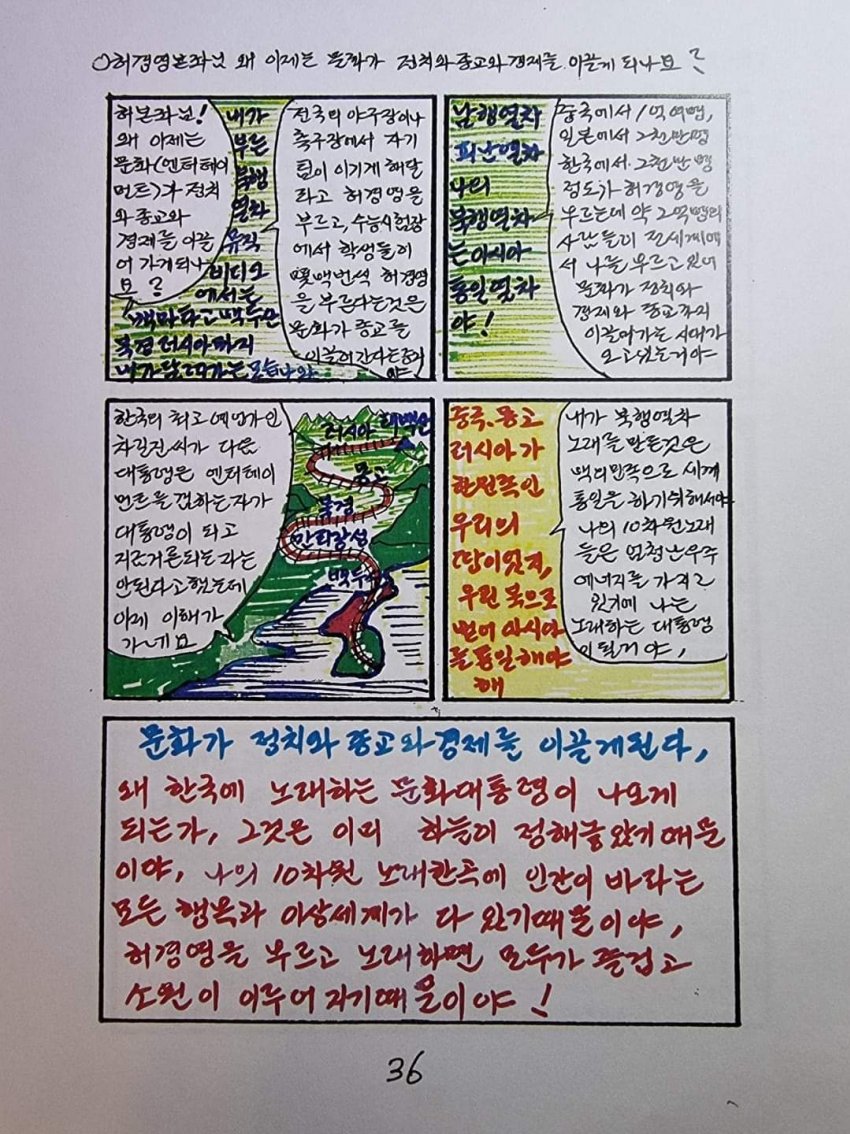 ○허경영본좌님 왜 이제는 문화가 정치와 종교와 경제를 이끌게 되나요?
허본좌님!
왜 이제는
문화(엔터테이
먼트)가 정치
와 종교와
경제를 이끌
어 가게되나
요?
내가
부른
북행
열차
뮤직
비디오
에서는
백마타고 백두산
북경 러시아까지
내가 달려가는 모습나와
전국의 야구장이나
축구장에서 자기
팀이 이기게 해달
라고 허경영을
부르고, 수능시험장
에서 학생들이
몇백번씩 허경영
을 부른다는것은
문화가 종교를
이끌어간다는증거
야
남행열차
피난열차
나의
북행열차
는 아시아
통일열차
야!
중국에서 1억여명,
일본에서 2천만명
한국에서 2천만명
정도가 허경영을
부르는데 약 2억명의
사람들이 전세계에
서 나를 부르고 있어
문화가 정치와
경제와 종교까지
이끌어가는 시대가
오고있는거야
한국의 최고예언가인
차길진씨가 다음
대통령은 엔터테이
먼트를 겸하는자가
대통령이 되고
지금거론되는자는
안된다고했는데
이제 이해가
가네요
러시아
몽고
북경
만리장성
백두산
중국, 몽고
러시아가
한민족인
우리의
땅이었지,
우린 북으로
뻗어 아시아
를 통일해야
해
내가 북행열차
노래를 만든것은
백의민족으로 세계
통일을 하기위해서야
나의 10차원노래
들은 엄청난우주
에너지를 가지고
있기에 나는
노래하는 대통령
이 될거야,
문화가 정치와 종교와 경제를 이끌게된다,
왜 한국에 노래하는 문화대통령이 나오게
되는가, 그것은 이미 하늘이 정해놓았기 때문
이야, 나의 10차원 노래한곡에 인간이 바라는
모든 행복과 이상세계가 다 있기때문이야,
허경영을 부르고 노래하면 모두가 즐겁고
소원이 이루어 지기때문이야!
36